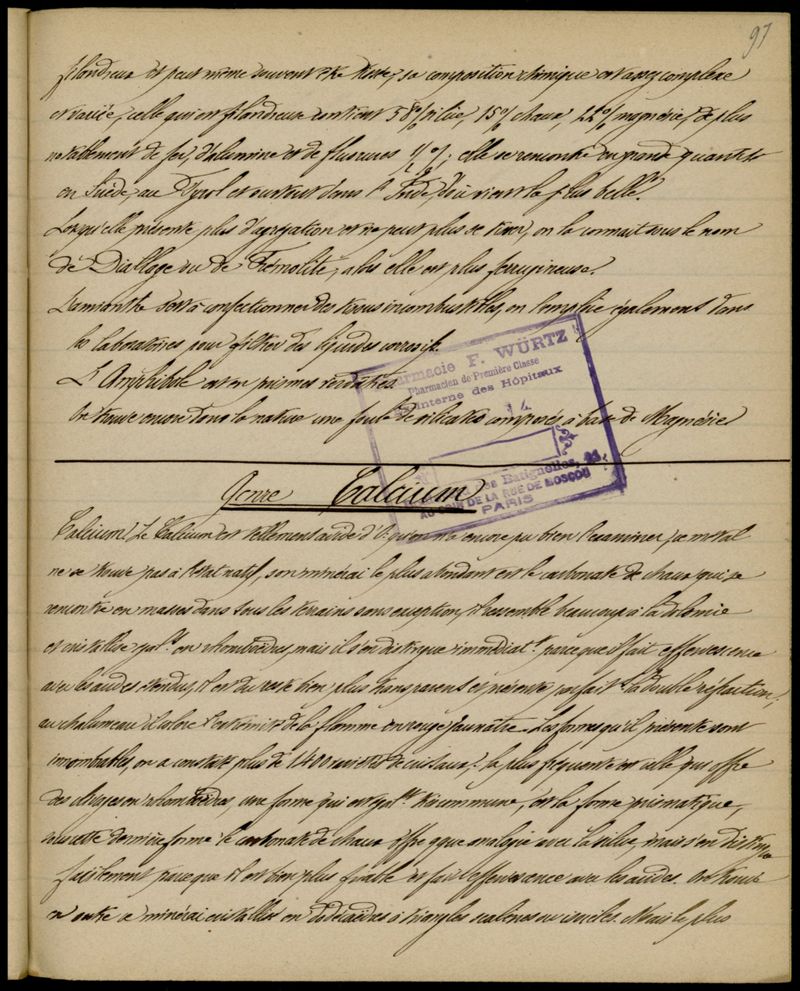 97
filandreux et peut même souvent être tissée, sa composition chimique est assez complexe
et variée, celle qui est filandreuse contient 58% silice, 15% chaux, 22% magnésie, de plus
notablement de fer, d'alumine et de fluorures; elle se rencontre en grande quantité
en Suède, au Tyrol et surtout dans l'Inde, d'où vient la plus belle.
Lorsqu'elle présente plus d'agrégation et ne peut plus se tisser, on la connait sous le nom
de Diallage ou de Trémolite, alors elle est plus ferrugineuse.
L'amianthe sert à confectionner des tissus incombustibles, on l'emploie également dans
les laboratoires pour filtrer des liquides corrosifs.
L'Amphibole est en prismes
On trouve encore dans la nature une foule de silicates composés à base de Magnésie
Pharmacie F. WÜRTZ
Pharmacien de Première Classe
Interne des Hôpitaux
14
des Batignolles, 21
AU COIN DE LA RUE DE MOSCOU
PARIS
Genre Calcium
Calcium. Le Calcium est tellement avide d'O. qu'on n'a encore pu bien l'examiner, ce métal
ne se trouve pas à l'état natif, son minérai le plus abondant est le carbonate de chaux qui se
rencontre en masses dans tous les terrains sans exception, il ressemble beaucoup à la dolomie
et cristallise en rhomboèdres, mais il s'en distingue immédiatt. parce qu'il fait effervescence
avec les acides étendus, il est du reste bien plus transparent et présente parfait. la double réfraction;
au chalumeau il colore l'extrémité de la flamme en rouge jaunâtre. Les formes qu'il présente sont
innombrables, on a constaté plus de 1400 variétés de cristaux: la plus fréquente est celle qui offre
des clivages en rhomboèdres, une forme qui est très commune, est la forme prismatique,
sous cette dernière forme le carbonate de chaux offre qque analogie avec la silice, mais s'en distingue
facilement parce que il est bien plus friable et fait effervescence avec les acides. On trouve
en outre ce minérai cristallisé en dodécaèdres à triangles scalènes ou isocèles. Mais le plus